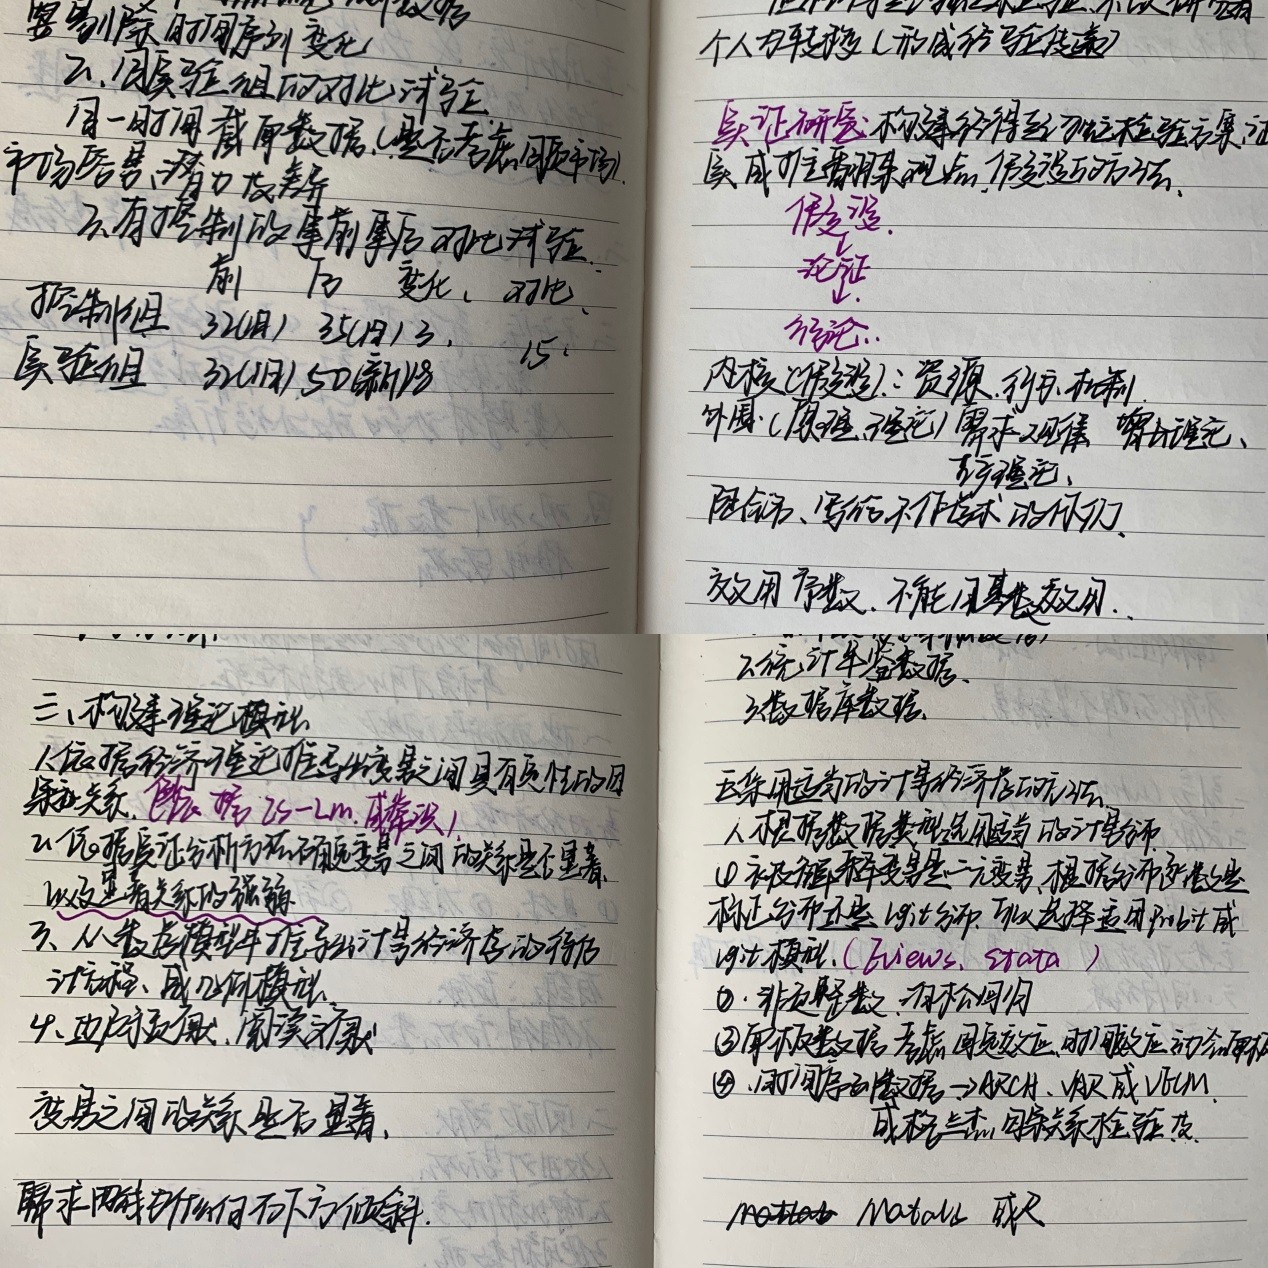 要剔除时间序列变化
2、同实验组的对比试验
同一时间截面数据、(是否考虑同质市场)
市场容量、潜力及差异
3、有控制的事前事后对比试验.
前 后 变化、对比、
控制组 32(旧) 35(旧) 3、
实验组 32(旧) 50(新) 18 15、
个人为转移(形成经验性结论)
实证研究:构建经得到检验方案,证
实或推翻某观点、假设的方法、
假设.
↓
论证
↓
结论..
内核(假设):资源、行为、机制.
外围:(原理、理论)需求、均衡 增长理论、
理论、
陆台湾、写给不作学术的你们、
效用序数、不能用基数效用..
三、构建理论模型.
1、依据经济理论推导出变量之间具有定性的因
果关系.(依据IS-LM.或蒙代尔)
2、依据实证分析方法确定变量之间的关系是否显著、
以及显著关系的强弱
3、从数理模型中推导出计量经济学的待估
计方程、或几何模型.
4、边际贡献、阅读文献
变量之间的关系是否显著、
需求曲线为什么向右下方倾斜.
2、统计年鉴数据、
3、数据库数据、
五、采用适当的计量经济学的方法、
1、根据数据类型选用适当的计量分布
① 若被解释变量是二元变量、根据分布函数是
标正分布还是logit分布.可以选择适用Probit或
logit模型、(Eviews、Stata)
②、非负整数、泊松回归
③面板数据考虑固定效应、时间效应动态面板
④、时间序列数据→ARCH、VAR或VECM、
或格兰杰因果关系检验法、
Matlab 或R